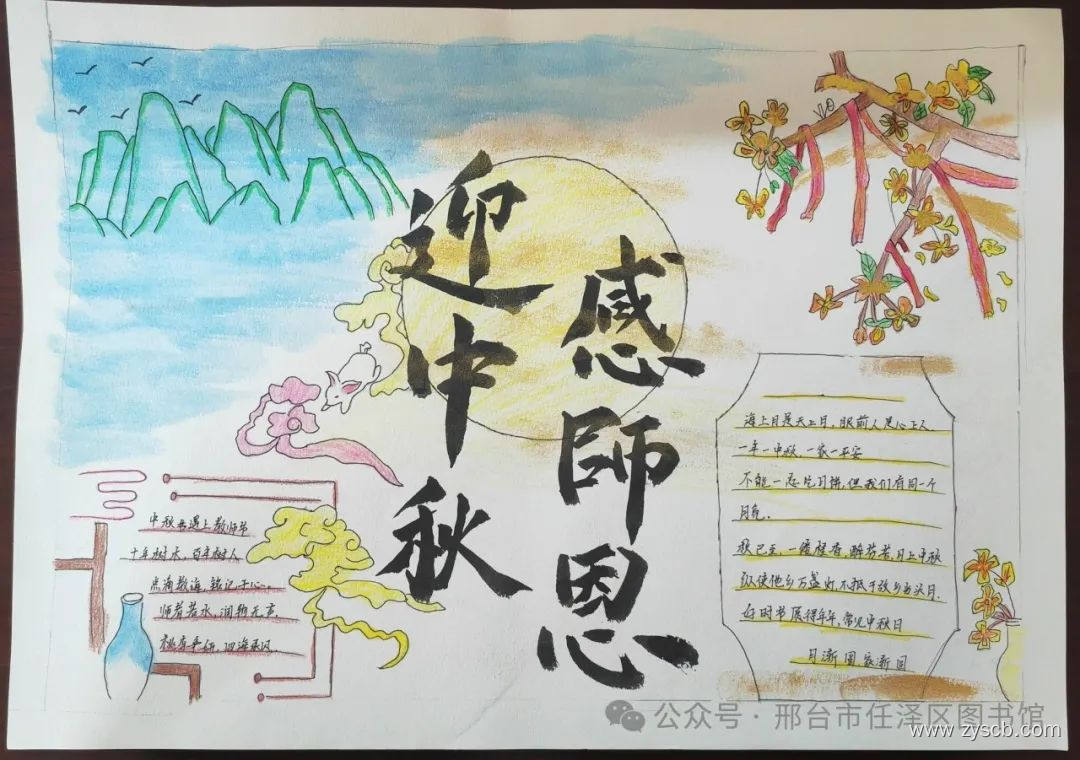 迎中秋
感師恩
海上月是天上月,眼前人是心上人
一年一中秋,一家一平安
不能一起吃月饼,但我们有同一个
月亮.
秋已至,一缕桂香醉芬芳,月上中秋
纵使他乡万盏灯,不抵于故乡当头月.
好时节愿得年年,常见中秋月
月渐圆家渐圆
中秋要遇上教师节
十年树木,百年树人
点滴教诲,铭记于心。
师者若水,润物无声.
桃李争妍,四海乘风.
公众号·邢台市任泽区图书馆
www.zyscb.com